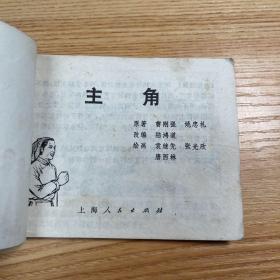 主角
原著 曹刚强 姚忠礼
改编 励鸿道
绘画 袁继先 张光政
唐西林
上海人民出版社